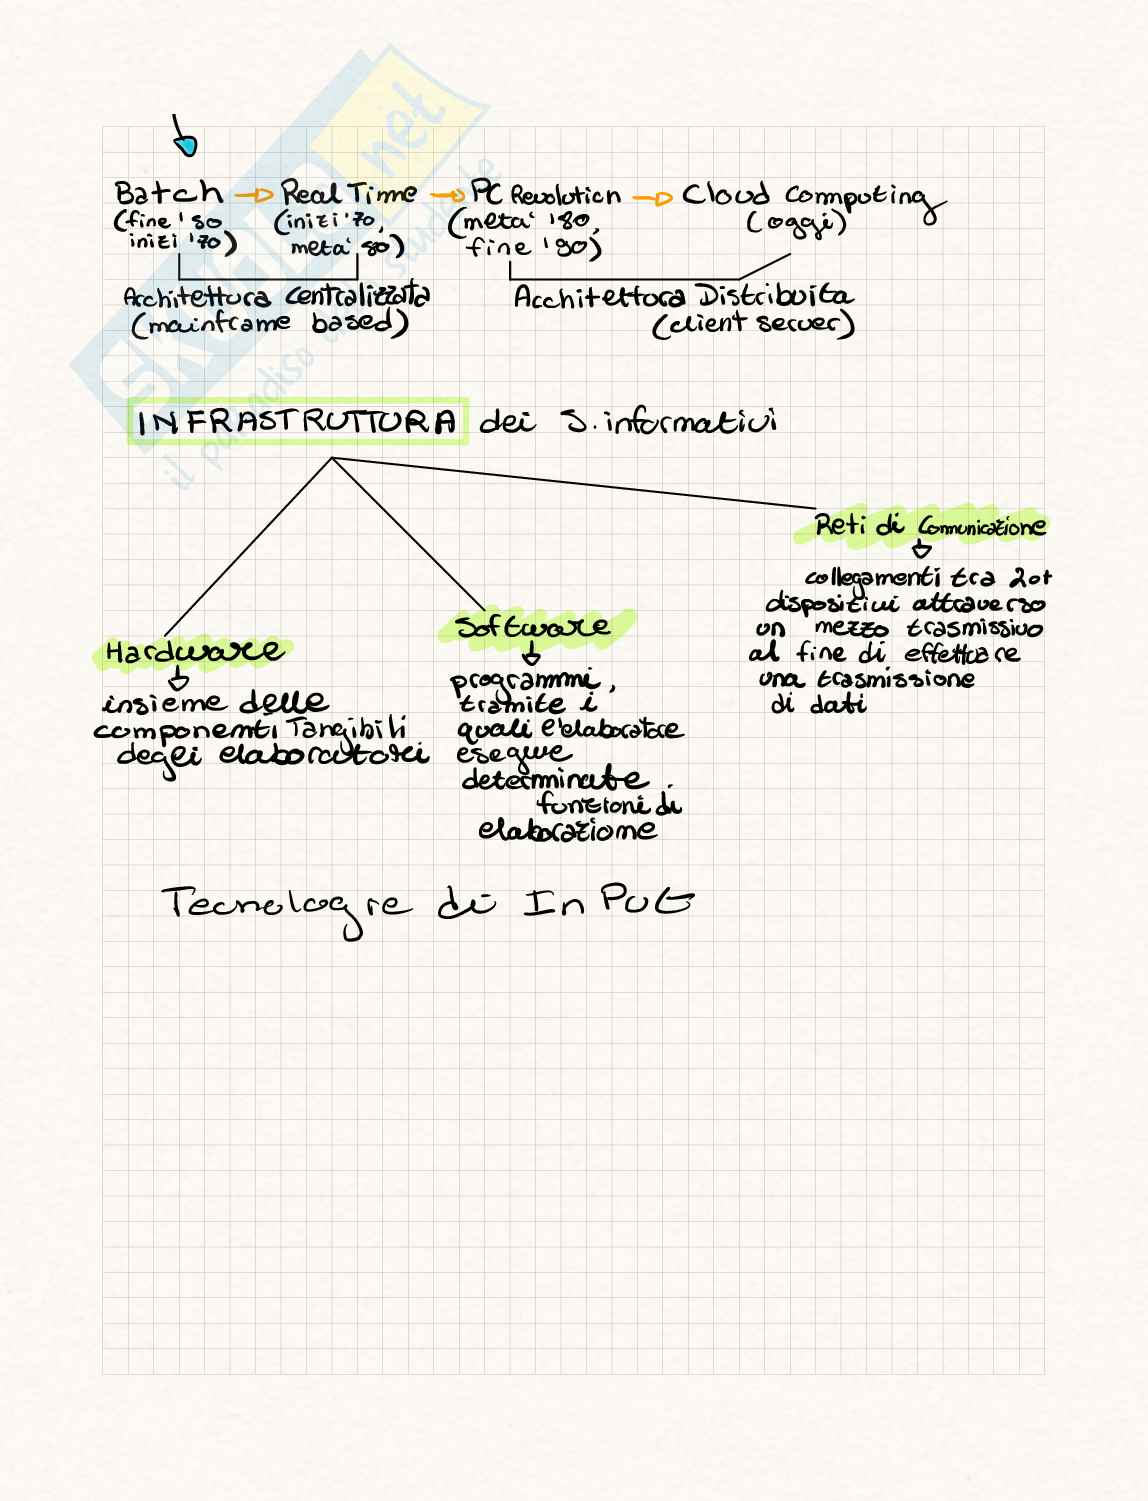 Batch → Real Time → PC Revolution → Cloud Computing
(fine '50 inizi '70) (inizi '70, metà 80) (metà '80, fine '90) (oggi)
Architettura Centralizzata
(mainframe based)
Architettura Distribuita
(client server)
INFRASTRUTTURA dei S. informativi
Reti di Comunicazione
collegamenti tra 2o+
dispositivi attraverso
un mezzo trasmissivo
al fine di effettuare
una trasmissione
di dati
Software
programmi,
tramite i
quali l'elaboratore
esegue
determinate
funzioni di
elaborazione
Hardware
insieme delle
componenti Tangibili
degli elaboratori
Tecnologie di InPut
SKUOLA.net
il paradiso dello studente